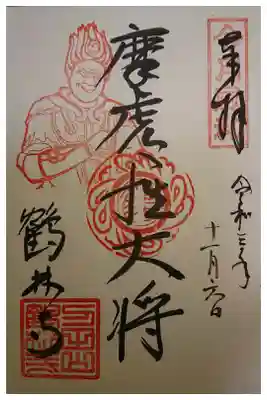 奉拝
令和三年
十一月六日
摩虎羅大将
鶴林寺